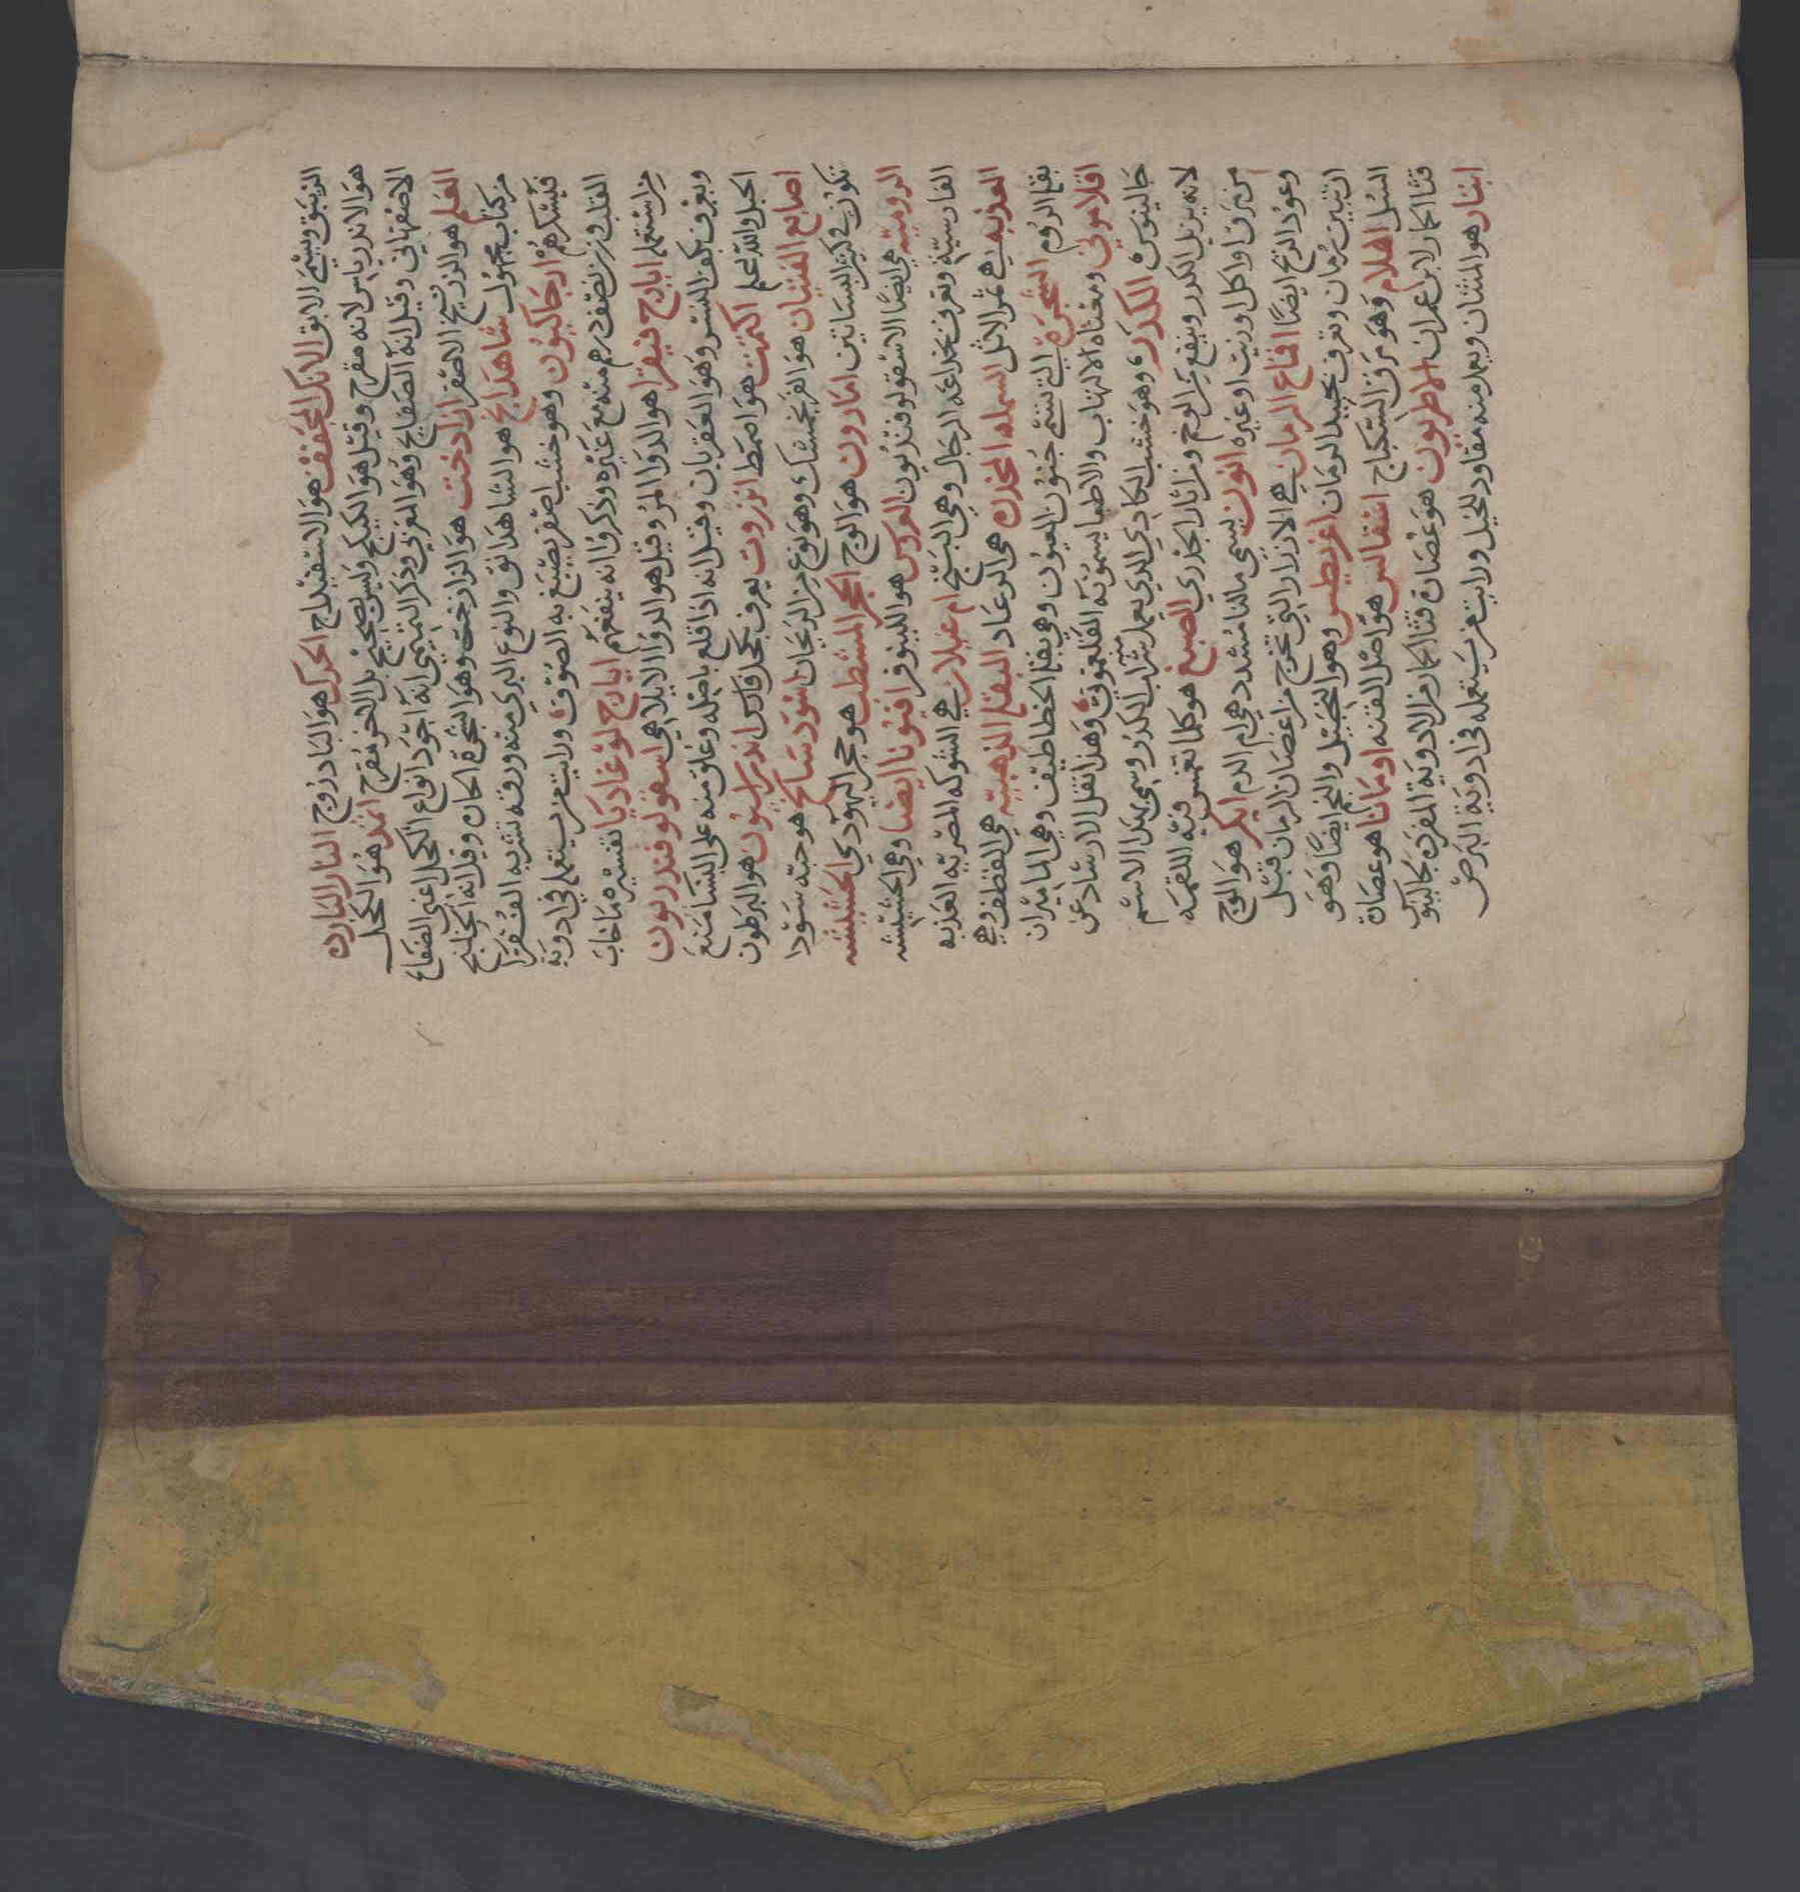 الزيبق ويسمى الابق الانك المجفف هو الاسفيداج الحرك هو البادروج النار البارده
هو الاندرياس لانه مفرح وقيل هو الكبيكج وليس بصحيح بل الاخر مفرح اثمد هو الكحل
الاصفهاني وقيل انه الصفايح وهو المغربي وذكر التميمي انه اجود انواع الكحل اعني الصفاح
العلم هو الزرنيخ الاصفر ازاد خت هو الزازخت وهو الشجرة الحان وقيل انه الخلنج
من كتاب مجهول شاهدانج هو الشاهدانق والنوع البري منه ورقه تشربه الفقرا
فيسكرهم ارجاكيون وهو خشب اصفر يصبغ به الصوف ورايت من يستعمله في ادوية
القلب وزن نصف درهم منه مع غيره وذكروا انه ينفعهم ايارج لوغاديا تفسيره ما خاب
من استعمله ايارج فيقرا هو الدوا المر وقيل هو الدوا الايلاهي اسقولوفندريون
ويعرف بكف النسر وهو العقربان وقيل انه اذا قلع باصله وعلق منه على النسا منع
الحبل والله اعلم اكتمت هو اصمط انزروت يعرف بكحل فارس اندراسيون هو البرطون
اصابع الفتيان هو الفرنجمشك وهو نوع من الريحان اسود سالخ هو حبه سودا
تكون في كثير البساتين امارون هو الوج الحجر المشطب هو حجر اليهودي الحشيشه
الروميه هي ايضا الاسقولوفندريون العروس هو اللينوفر افيونا ايضا وهي الحشيشه
الفارسية وتعرف بخداعه الرجال وهي البنج ام غيلان هي الشوكه المصريه العذبه
العذبه هي ثمر الاثل السمكه المخدره هي الرعاد البقله الذهبيه هي القطف وهي
بقله الروم الشجرة التي تسمى جنون العيون وهي بقله الخطاطيف وهي الماميران
اقلاموني ومعناه الالتهاب والاطبا يسمونه القلغموني وهذا نقل الارشاد عن
جالينوس الكدر وهو خشب الكادي الذي يعمل شراب الكدر وسمي بهذا الاسم
لانه يزيل الكدر وينفع من الوخم ومن اثار الجدري الصبغ هو كلما تغمس فيه اللقمه
من مرق او كل او زيت او غيره انون يسمى مالنا مشدد هي ام الدم ايكر هو الوج
وعود الريح ايضا اقماع الرمان هي الازرار التي تخرج من اغصان الرمان قبل
ان تتبين رمان وتعرف بجنبد الرمان اغريطس وهو النجيل والنجم ايضا وهو
السل اهلام وهو مرق السكباج اشقالس هو اصل القنه اومانا هو عصاة
قثا الحمار لابن عمران الاطريون هو عصارة قثا الحمار من الادوية المفرده لجالينوس
ابثار هو المثنان ويعمل منه مقاود للخيل ورايت من يستعمله في ادوية البرص